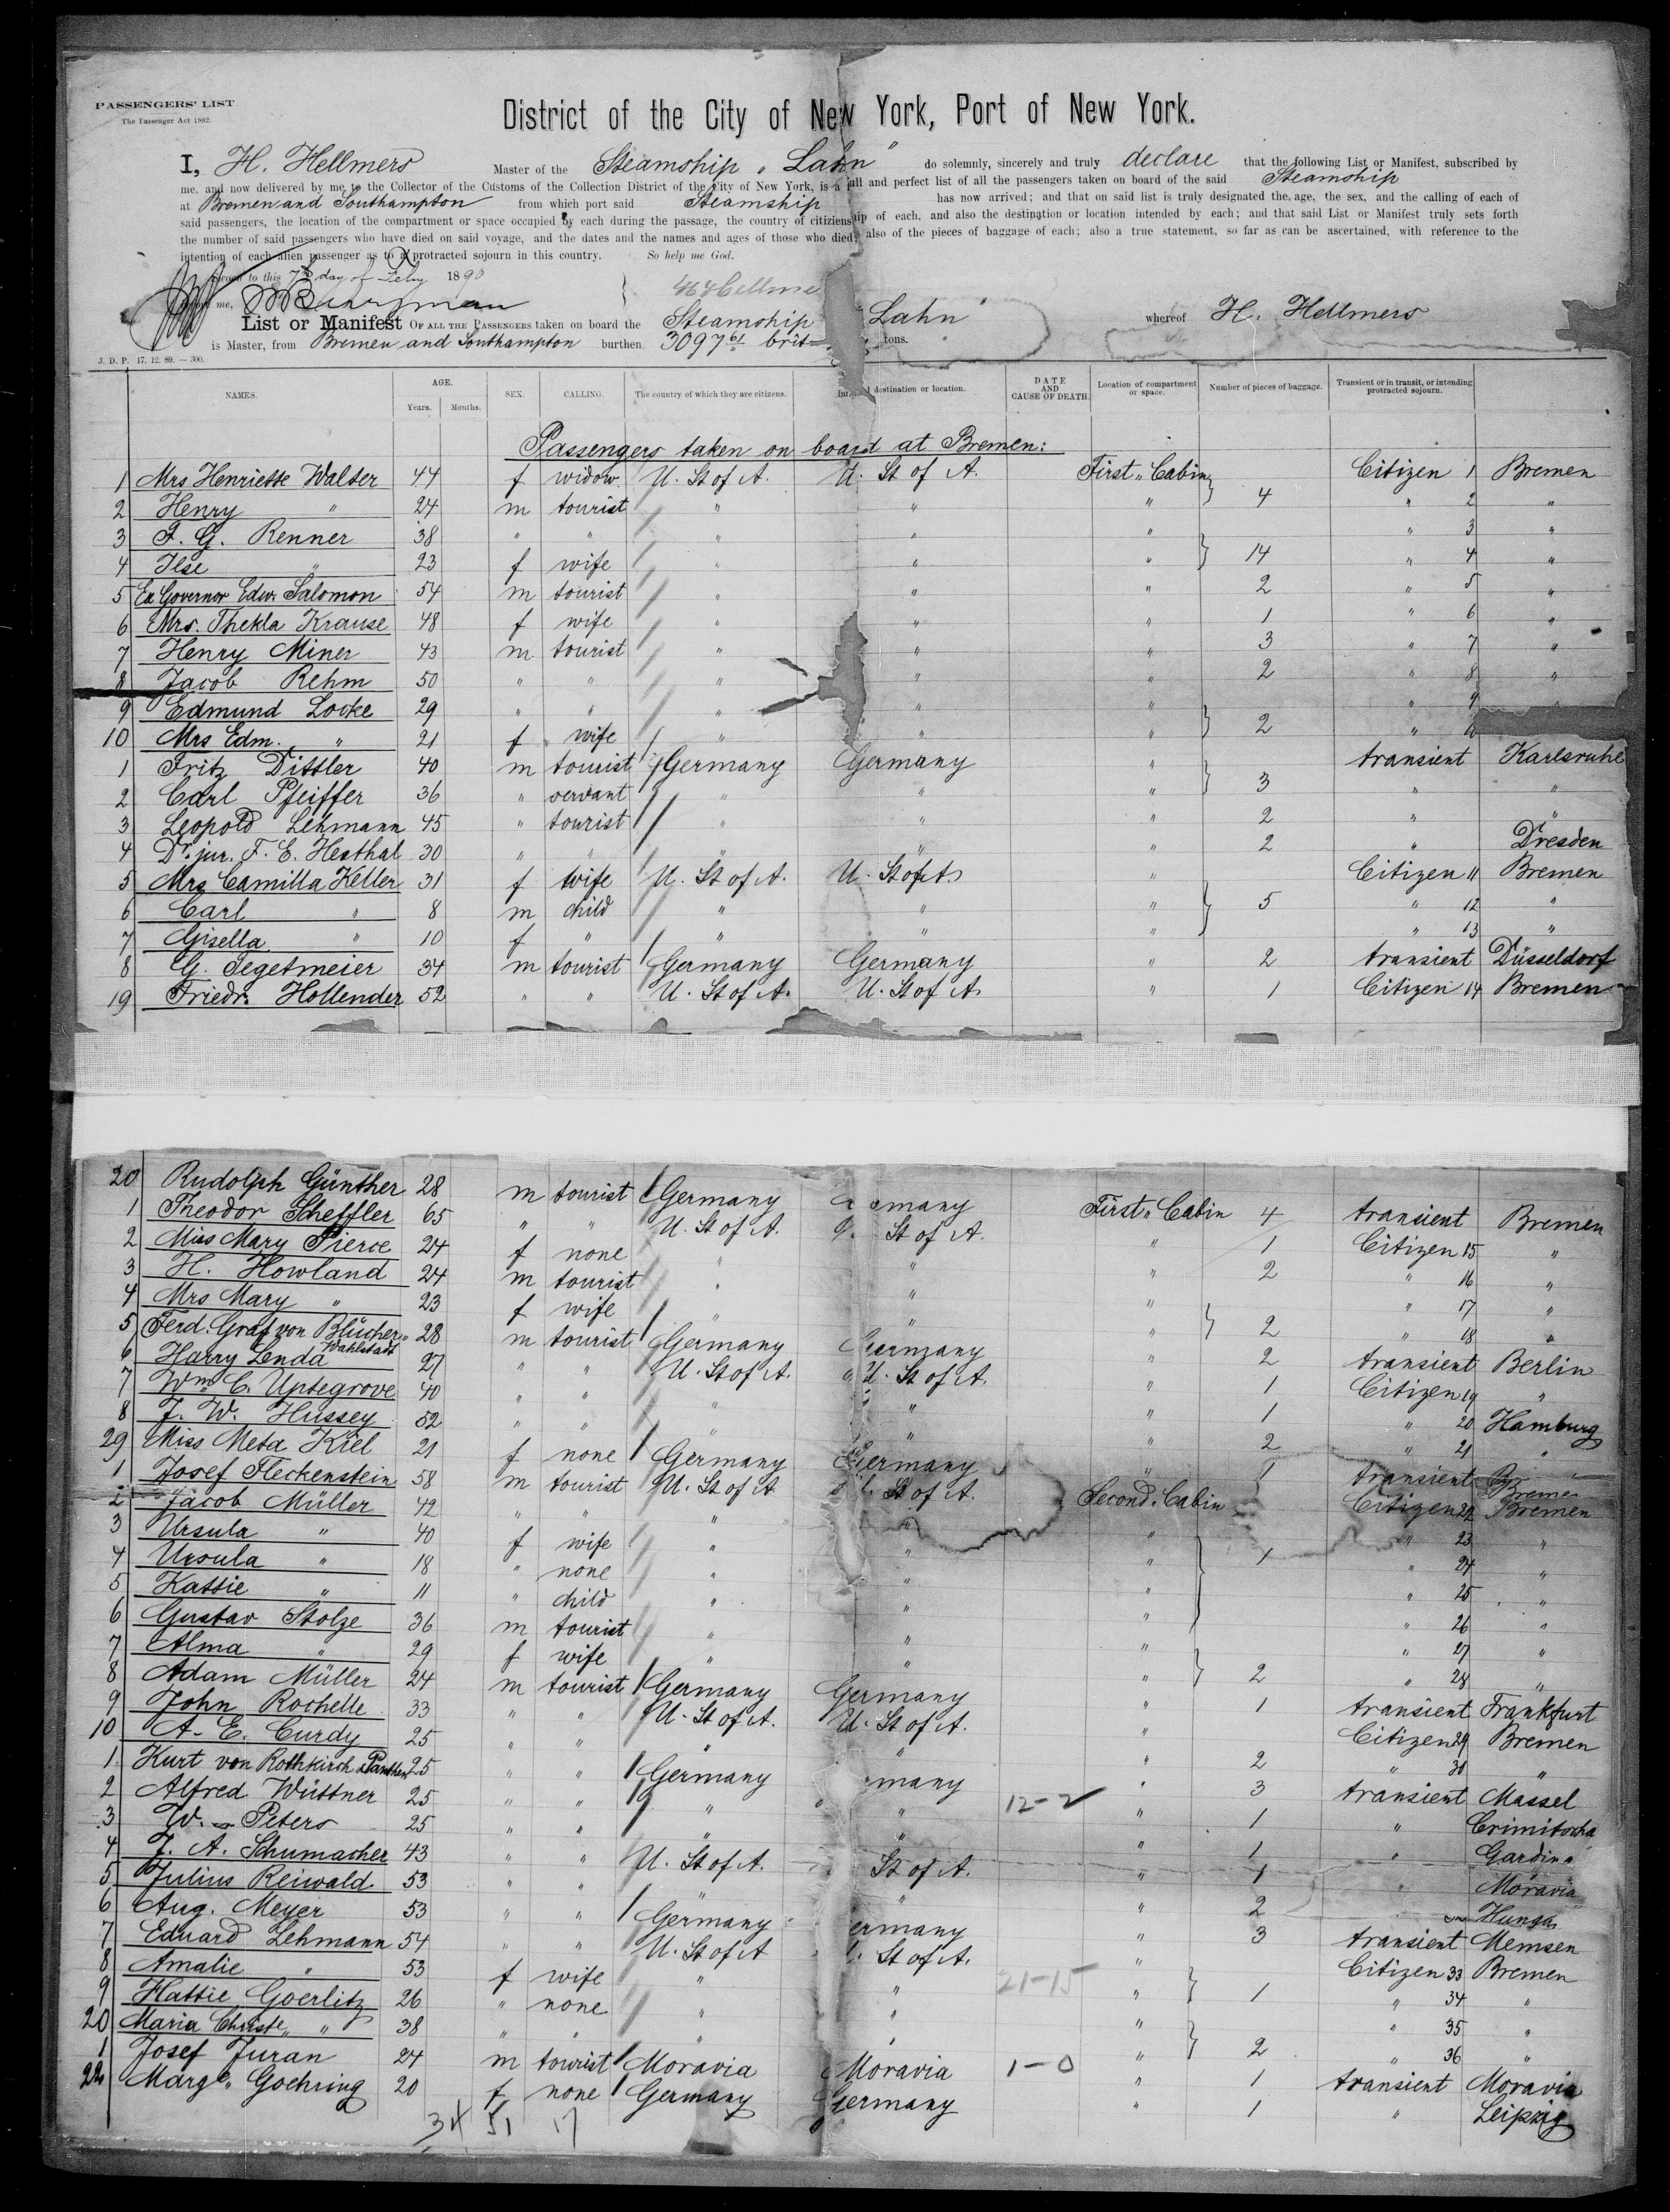 PASSENGERS' LIST
The Passenger Act 1882.
District of the City of New York, Port of New York.
I, H. Hellmers Master of the Steamship „Lahn" do solemnly, sincerely and truly declare that the following List or Manifest, subscribed by
me, and now delivered by me to the Collector of the Customs of the Collection District of the City of New York, is a full and perfect list of all the passengers taken on board of the said Steamship
at Bremen and Southampton from which port said Steamship has now arrived; and that on said list is truly designated the age, the sex, and the calling of each of
said passengers, the location of the compartment or space occupied by each during the passage, the country of citizienship of each, and also the destination or location intended by each; and that said List or Manifest truly sets forth
the number of said passengers who have died on said voyage, and the dates and the names and ages of those who died; also of the pieces of baggage of each; also a true statement, so far as can be ascertained, with reference to the
intention of each alien passenger as to a protracted sojourn in this country. So help me God.
to this 7th day of Feby 1890
me, H Hellme
List or Manifest OF ALL THE PASSENGERS taken on board the Steamship Lahn" whereof H. Hellmers
is Master, from Bremen and Southampton burthen 3097 61 brit tons.
J. D. P. 17. 12. 89. — 300.
NAMES. AGE. Years. Months. SEX. CALLING. The country of which they are citizens. destination or location. DATE AND CAUSE OF DEATH. Location of compartment or space. Number of pieces of baggage. Transient or in transit, or intending protracted sojourn.
Passengers taken on board at Bremen:
1 Mrs Henriette Walter 44 f widow U. St of A. U. St of A. First „ Cabin Citizen 1 Bremen
2 Henry " 24 m tourist " " " 4 " 2 "
3 F. G. Renner 38 " " " " " " 3 "
4 Ilse " 23 f wife " " " 14 " 4 "
5 Ex Governor Edw. Salomon 54 m tourist " " " 2 " 5 "
6 Mrs. Thekla Krause 48 f wife " " " 1 " 6 "
7 Henry Miner 43 m tourist " " " 3 " 7 "
8 Jacob Rehm 50 " " " " " 2 " 8 "
9 Edmund Locke 29 " " " " " " 9
10 Mrs Edm. " 21 f wife " " " 2 "
1 Fritz Dittler 40 m tourist Germany Germany " transient Karlsruhe
2 Carl Pfeiffer 36 " servant " " " 3 " "
3 Leopold Lehmann 45 " tourist " " " 2 " "
4 Dr. jur. F. E. Hesthal 30 " " " " " 2 " Dresden
5 Mrs Camilla Keller 31 f wife U. St of A. U. St of A. " Citizen 11 Bremen
6 Carl " 8 m child " " " 5 " 12 "
7 Gisella " 10 f " " " " " 13 "
8 G. Tegetmeier 34 m tourist Germany Germany " 2 transient Düsseldorf
19 Friedr. Hollender 52 " " U. St of A. U. St of A. " 1 Citizen 14 Bremen
20 Rudolph Günther 28 m tourist Germany many First „ Cabin 4 transient Bremen
1 Theodor Scheffler 65 " " U. St of A. St of A. " 1 Citizen 15 "
2 Miss Mary Pierce 24 f none " " " 2 " 16 "
3 H. Howland 24 m tourist " " " " 17 "
4 Mrs Mary " 23 f wife " " " 2 " 18 "
5 Ferd. Graf von Blücher-Wahlstadt 28 m tourist Germany Germany " 2 transient Berlin
6 Harry Lenda 27 " " U. St of A. U. St of A. " 1 Citizen 19 "
7 Wm. C. Uptegrove 40 " " " " " 1 " 20 Hamburg
8 J. W. Hussey 52 " " " " " 2 " 21 "
29 Miss Meta Kiel 21 f none Germany Germany " 1 transient Breme
1 Josef Fleckenstein 58 m tourist U. St of A St of A. Second „ Cabin Citizen 22 Bremen
2 Jacob Müller 42 " " " " " " 23 "
3 Ursula " 40 f wife " " " 1 " 24 "
4 Ursula " 18 " none " " " " 25 "
5 Kattie " 11 " child " " " " 26 "
6 Gustav Stolze 36 m tourist " " " " 27 "
7 Alma " 29 f wife " " " 2 " 28 "
8 Adam Müller 24 m tourist Germany Germany " 1 transient Frankfurt
9 John Rochelle 33 " " U. St of A. U. St of A. " Citizen 29 Bremen
10 A. E. Curdy 25 " " " " " 2 " 30 "
1 Kurt von Rothkirch Panthen 25 " " Germany many " 3 transient Massel
2 Alfred Wüttner 25 " " " " 12-2 " 1 "
3 W. Peters 25 " " " " " 1 "
4 J. A. Schumacher 43 " " U. St of A. St of A. " 1 " Moravia
5 Julius Reiwald 53 " " " " " 2
6 Aug. Meyer 53 " " Germany ermany " 3 transient Memsen
7 Eduard Lehmann 54 " " U. St of A St of A. " Citizen 33 Bremen
8 Amalie " 53 f wife " " 21-15 " 1 " 34 "
9 Hattie Goerlitz 26 " none " " " " 35 "
20 Maria Christe „ " 38 " " " " " 2 " 36 "
1 Josef Juran 24 m tourist Moravia Moravia 1-0 " 1 transient Moravia
22 Marge „ Goehring 20 f none Germany Germany " 1 " Leipzig
34 51 17